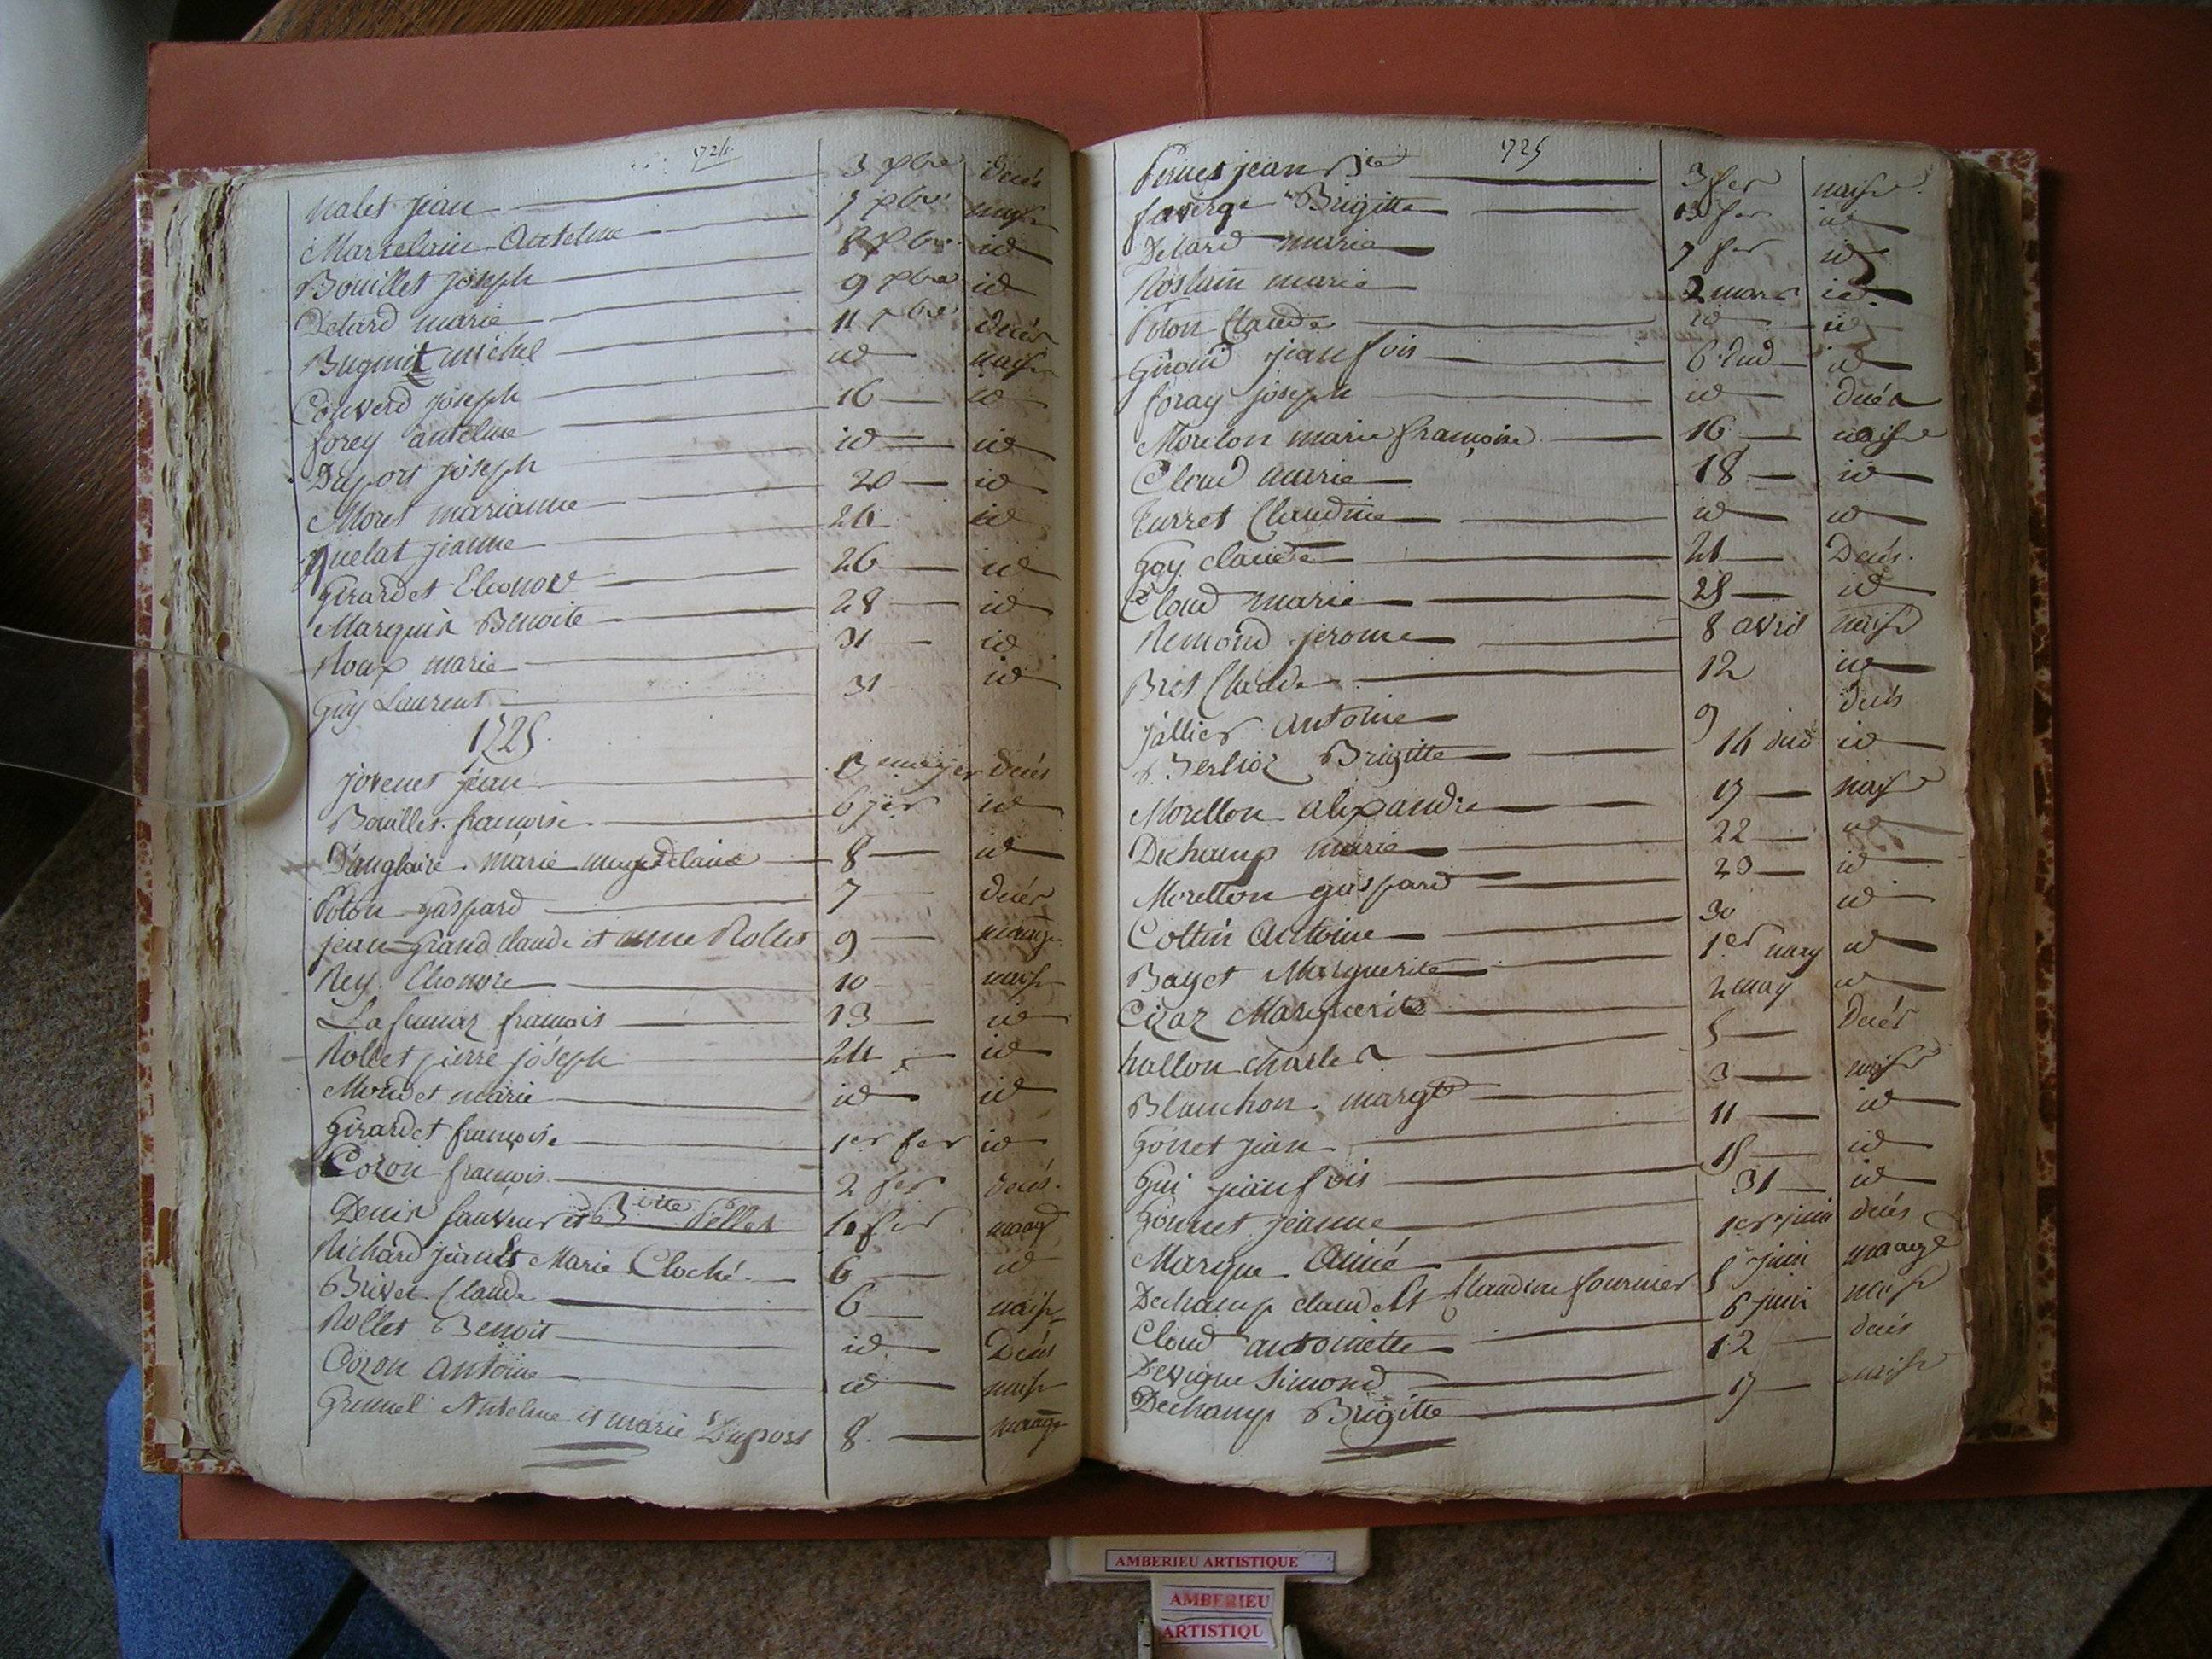 1724
nalet jean 3 xbre decés
Martelain Antelme 7 xbre naisse
Bouillet joseph 8 xbre id
Detard marie 9 xbre id
Bugnit michel 11 xbre decés
Convert joseph id naisse
forey antelme 16 id
Duport joseph id id
Moret marianne 20 id
quelat jeanne 26 id
Girardet Eleonore 26 id
Marquis Benoite 28 id
Roux marie 31 id
Guy Laurent 31 id
1725
jovenet jean decés
Bouillet francoise 6 jer id
Danglaire marie magdelaine 8 id
Poton gaspard 7 decés
jean Grand claude et anne Rollet 9 mariage
Rey Eleonore 10 naisse
Lafumaz francois 13 id
Rollet pierre joseph 24 id
Mondet marie id id
Girardet francoise 1er fer id
Cozon francois 2 fer decés
Denis sauveur et Pellet 10 fer maage
Richard jean Et Marie Cloché 6 id
Brivet Claude 6 naisse
Rollet Benoit id Decés
Cozon Antoine id naisse
Grumel Antelme et marie Duport 8 maage
1725
Pernet jean 3 fer naisse
faverge Brigitte 13 fer id
Detard marie 7 fer id
Roslain marie 2 mars id
Poton Claude id id
Giroud jean fois 6 dud id
foray joseph id decés
Morelon marie francoise 16 naisse
Cloud marie 18 id
Turret Claudine id id
Goy claude 21 Decés
Cloud marie 25 id
Remond jerome 8 avril naisse
Bret Claude 12 id
jallier antoine 9 decés
Berlioz Brigitte 14 dud id
Morellon alexandre 17 naisse
Dechamp marie 22 id
Morellon gaspard 23 id
Cottin Antoine 30 id
Bayet Marguerite 1er may id
Cizaz Marguerite 2 may id
hallon charles 5 decés
Blanchon margte 3 naisse
Gonet jean 11 id
Gui jean fois 15 id
Gonnet jeanne 31 id
Marque Aimé 1er juin decés
Dechamp claude Et Claudine fournier 5 juin maage
Cloud antoinette 6 juin naisse
Devigne Simond 12 decés
Dechamp Brigitte 17 naisse
AMBERIEU ARTISTIQUE
AMBERIEU
ARTISTIQU